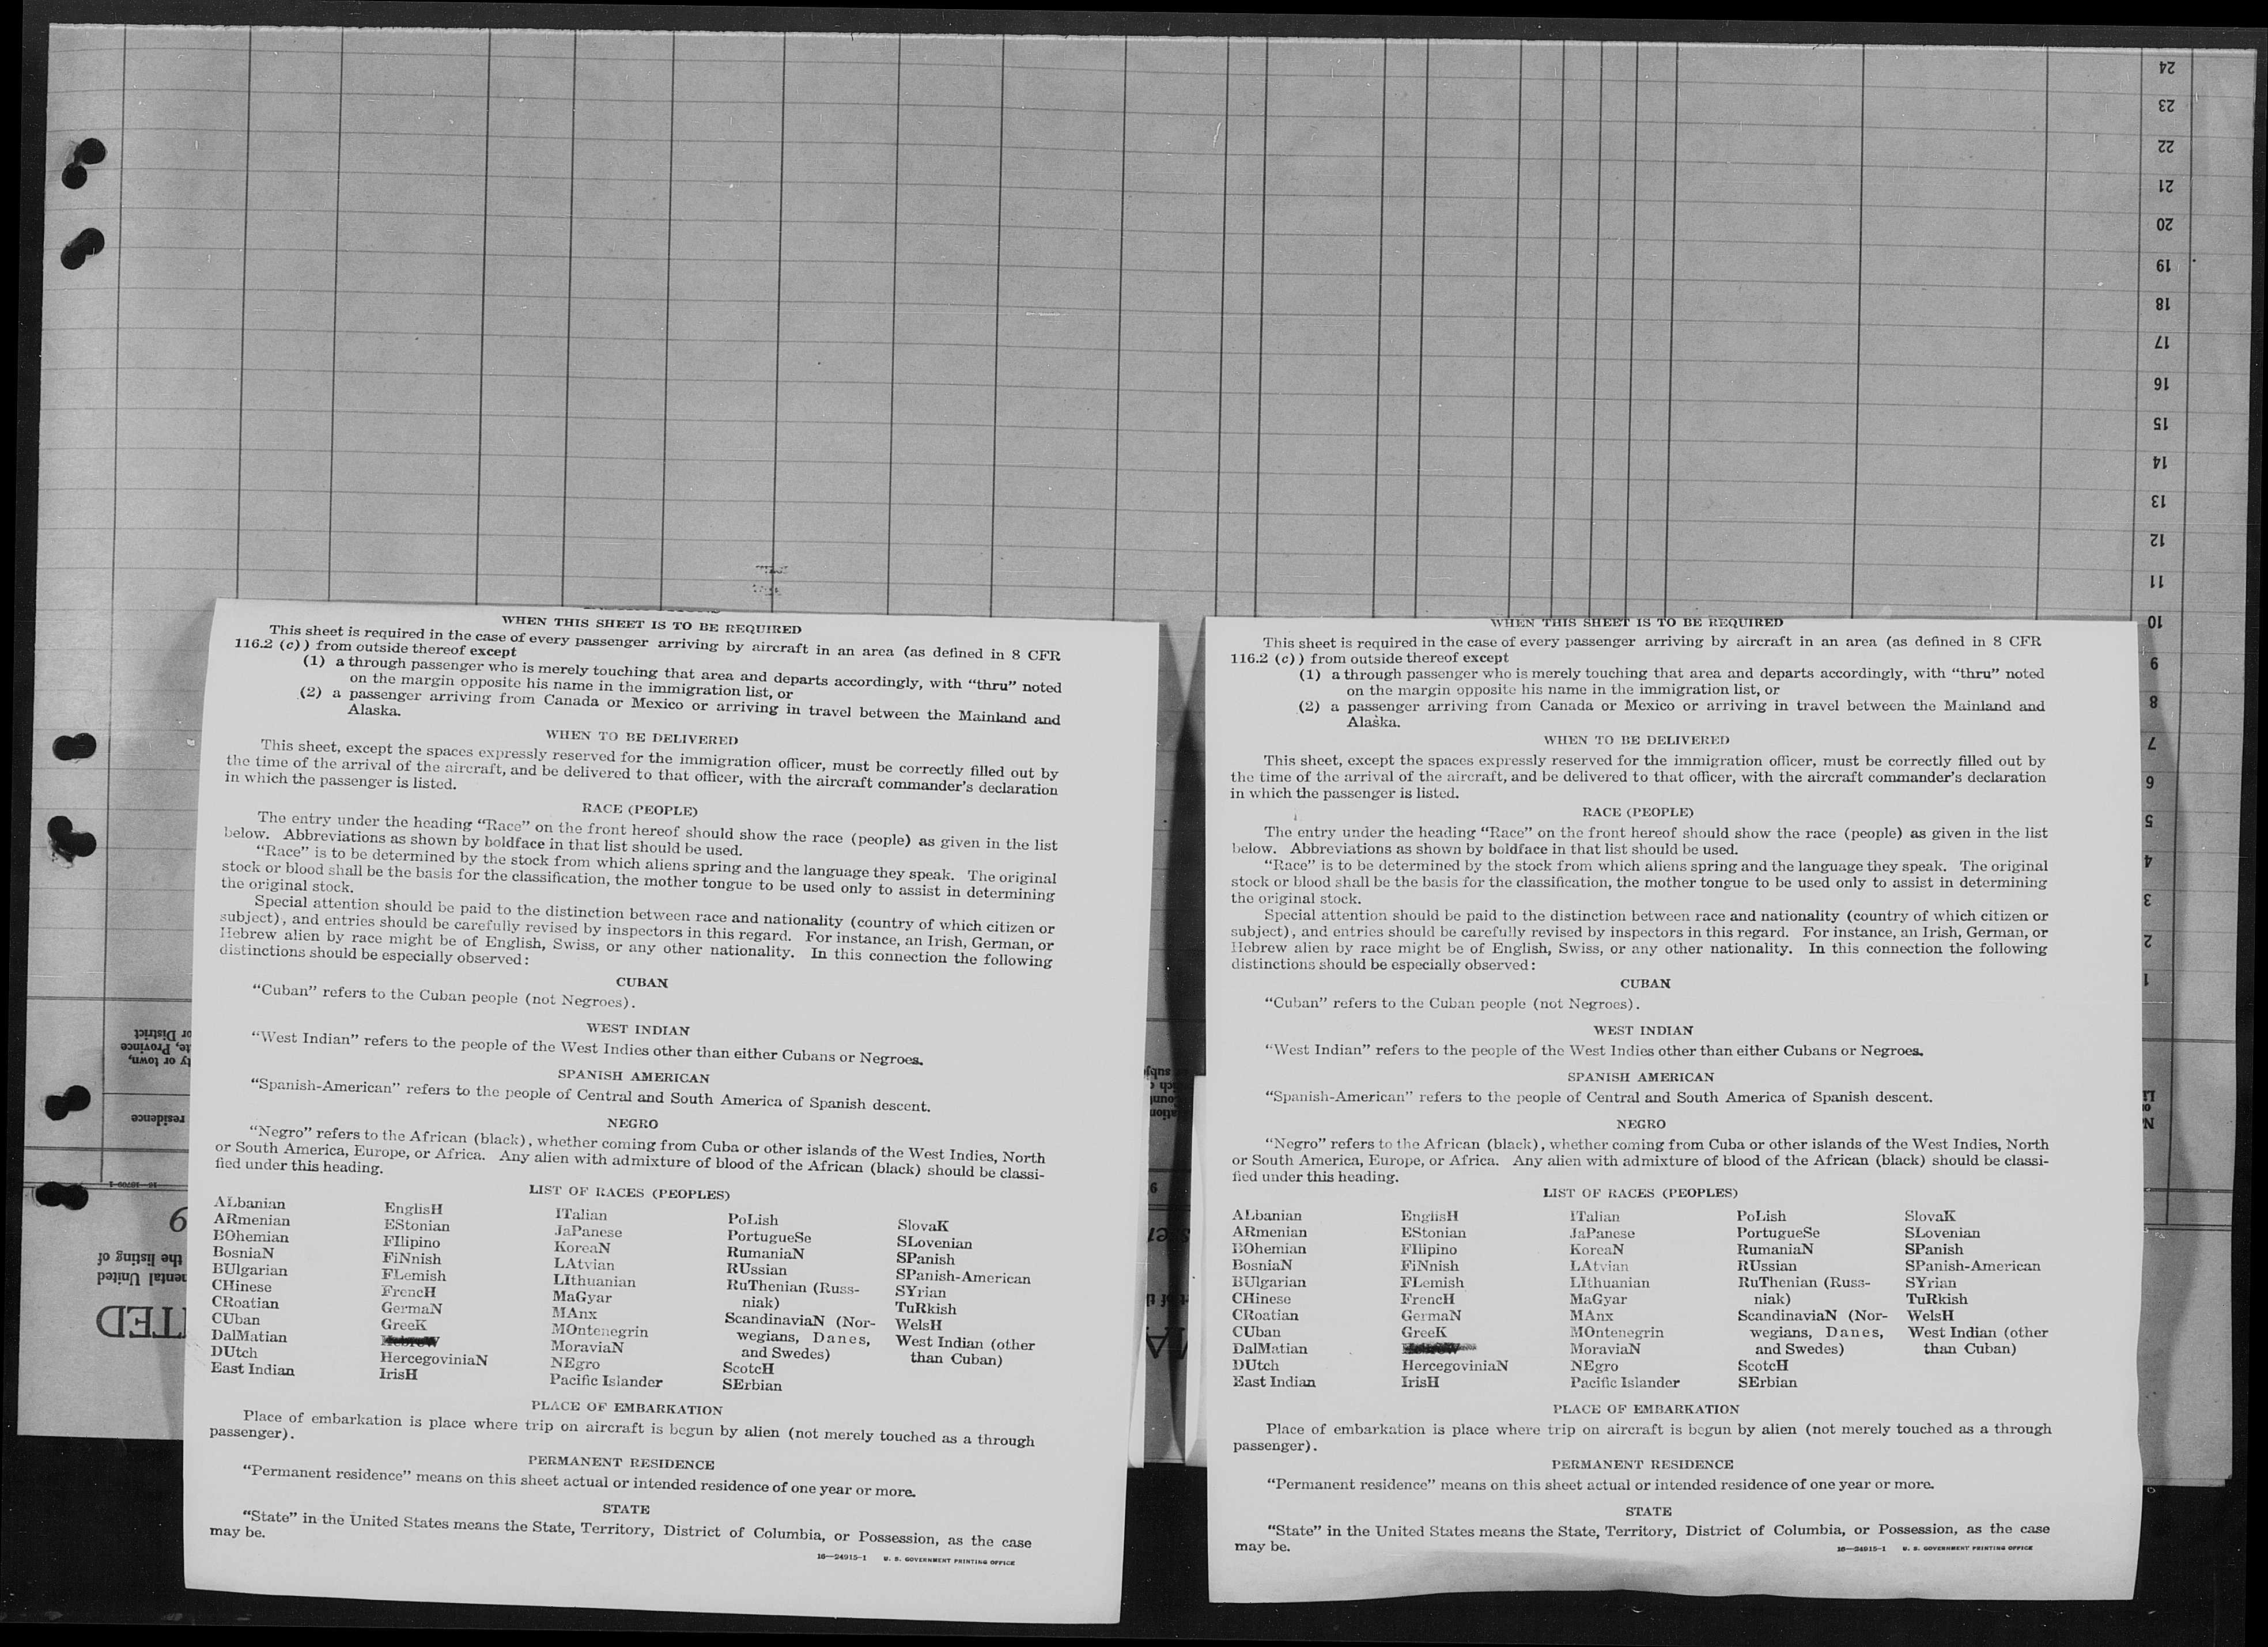 24
23
22
21
20
19
18
17
16
15
14
13
12
11
10
9
8
7
6
5
4
3
2
1
WHEN THIS SHEET IS TO BE REQUIRED
This sheet is required in the case of every passenger arriving by aircraft in an area (as defined in 8 CFR
116.2 (c)) from outside thereof except
(1) a through passenger who is merely touching that area and departs accordingly, with “thru” noted
on the margin opposite his name in the immigration list, or
(2) a passenger arriving from Canada or Mexico or arriving in travel between the Mainland and
Alaska.
WHEN TO BE DELIVERED
This sheet, except the spaces expressly reserved for the immigration officer, must be correctly filled out by
the time of the arrival of the aircraft, and be delivered to that officer, with the aircraft commander’s declaration
in which the passenger is listed.
RACE (PEOPLE)
The entry under the heading “Race” on the front hereof should show the race (people) as given in the list
below. Abbreviations as shown by boldface in that list should be used.
“Race” is to be determined by the stock from which aliens spring and the language they speak. The original
stock or blood shall be the basis for the classification, the mother tongue to be used only to assist in determining
the original stock.
Special attention should be paid to the distinction between race and nationality (country of which citizen or
subject), and entries should be carefully revised by inspectors in this regard. For instance, an Irish, German, or
Hebrew alien by race might be of English, Swiss, or any other nationality. In this connection the following
distinctions should be especially observed:
CUBAN
“Cuban” refers to the Cuban people (not Negroes).
WEST INDIAN
“West Indian” refers to the people of the West Indies other than either Cubans or Negroes.
SPANISH AMERICAN
“Spanish-American” refers to the people of Central and South America of Spanish descent.
NEGRO
“Negro” refers to the African (black), whether coming from Cuba or other islands of the West Indies, North
or South America, Europe, or Africa. Any alien with admixture of blood of the African (black) should be classi-
fied under this heading.
LIST OF RACES (PEOPLES)
ALbanian
ARmenian
BOhemian
BosniaN
BUlgarian
CHinese
CRoatian
CUban
DalMatian
DUtch
East Indian
EnglisH
EStonian
FIlipino
FiNnish
FLemish
FrencH
GermaN
GreeK
HebreW
HercegoviniaN
IrisH
ITalian
JaPanese
KoreaN
LAtvian
LIthuanian
MaGyar
MAnx
MOntenegrin
MoraviaN
NEgro
Pacific Islander
PoLish
PortugueSe
RumaniaN
RUssian
RuThenian (Russ-
niak)
ScandinaviaN (Nor-
wegians, Danes,
and Swedes)
ScotcH
SErbian
SlovaK
SLovenian
SPanish
SPanish-American
SYrian
TuRkish
WelsH
West Indian (other
than Cuban)
PLACE OF EMBARKATION
Place of embarkation is place where trip on aircraft is begun by alien (not merely touched as a through
passenger).
PERMANENT RESIDENCE
“Permanent residence” means on this sheet actual or intended residence of one year or more.
STATE
“State” in the United States means the State, Territory, District of Columbia, or Possession, as the case
may be.
16—24915-1 U. S. GOVERNMENT PRINTING OFFICE
WHEN THIS SHEET IS TO BE REQUIRED
This sheet is required in the case of every passenger arriving by aircraft in an area (as defined in 8 CFR
116.2 (c)) from outside thereof except
(1) a through passenger who is merely touching that area and departs accordingly, with “thru” noted
on the margin opposite his name in the immigration list, or
(2) a passenger arriving from Canada or Mexico or arriving in travel between the Mainland and
Alaska.
WHEN TO BE DELIVERED
This sheet, except the spaces expressly reserved for the immigration officer, must be correctly filled out by
the time of the arrival of the aircraft, and be delivered to that officer, with the aircraft commander’s declaration
in which the passenger is listed.
RACE (PEOPLE)
The entry under the heading “Race” on the front hereof should show the race (people) as given in the list
below. Abbreviations as shown by boldface in that list should be used.
“Race” is to be determined by the stock from which aliens spring and the language they speak. The original
stock or blood shall be the basis for the classification, the mother tongue to be used only to assist in determining
the original stock.
Special attention should be paid to the distinction between race and nationality (country of which citizen or
subject), and entries should be carefully revised by inspectors in this regard. For instance, an Irish, German, or
Hebrew alien by race might be of English, Swiss, or any other nationality. In this connection the following
distinctions should be especially observed:
CUBAN
“Cuban” refers to the Cuban people (not Negroes).
WEST INDIAN
“West Indian” refers to the people of the West Indies other than either Cubans or Negroes.
SPANISH AMERICAN
“Spanish-American” refers to the people of Central and South America of Spanish descent.
NEGRO
“Negro” refers to the African (black), whether coming from Cuba or other islands of the West Indies, North
or South America, Europe, or Africa. Any alien with admixture of blood of the African (black) should be classi-
fied under this heading.
LIST OF RACES (PEOPLES)
ALbanian
ARmenian
BOhemian
BosniaN
BUlgarian
CHinese
CRoatian
CUban
DalMatian
DUtch
East Indian
EnglisH
EStonian
FIlipino
FiNnish
FLemish
FrencH
GermaN
GreeK
HebreW
HercegoviniaN
IrisH
ITalian
JaPanese
KoreaN
LAtvian
LIthuanian
MaGyar
MAnx
MOntenegrin
MoraviaN
NEgro
Pacific Islander
PoLish
PortugueSe
RumaniaN
RUssian
RuThenian (Russ-
niak)
ScandinaviaN (Nor-
wegians, Danes,
and Swedes)
ScotcH
SErbian
SlovaK
SLovenian
SPanish
SPanish-American
SYrian
TuRkish
WelsH
West Indian (other
than Cuban)
PLACE OF EMBARKATION
Place of embarkation is place where trip on aircraft is begun by alien (not merely touched as a through
passenger).
PERMANENT RESIDENCE
“Permanent residence” means on this sheet actual or intended residence of one year or more.
STATE
“State” in the United States means the State, Territory, District of Columbia, or Possession, as the case
may be.
16—24915-1 U. S. GOVERNMENT PRINTING OFFICE
or District
Province
or town,
residence
the listing of
United